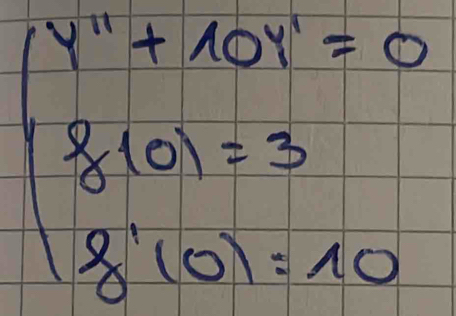 y'' + 10y' = 0
f(0) = 3
f'(0) = 10